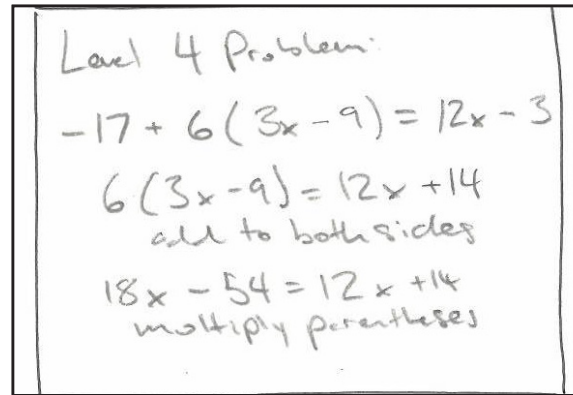 Level 4 Problem:
-17 + 6(3x - 9) = 12x - 3
6(3x - 9) = 12x + 14
add to both sides
18x - 54 = 12x + 14
multiply parentheses